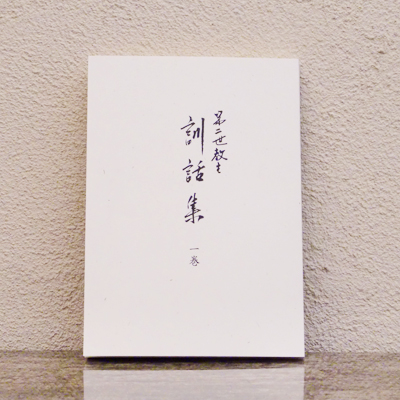 第二世教主
訓話集
一巻